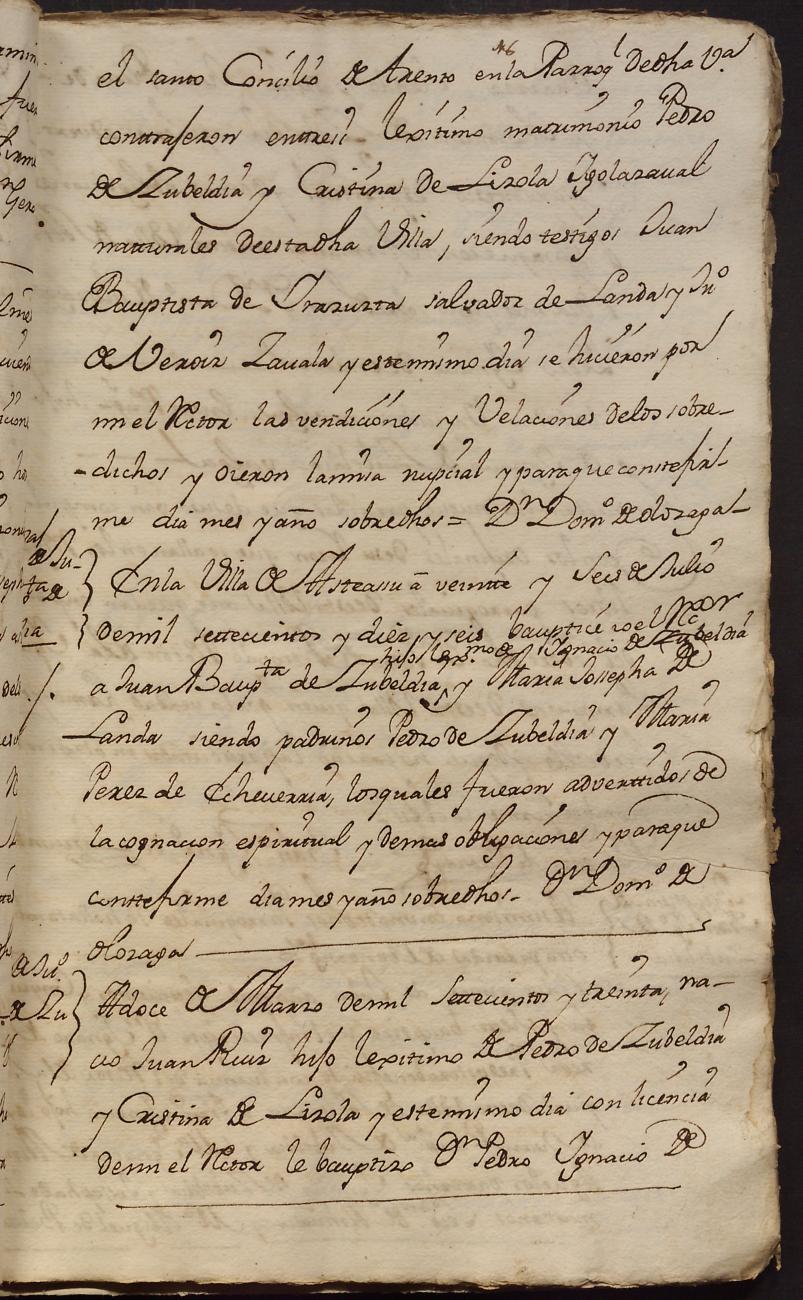 46
el santo Concilio de Trento en la Parroql dedha Va
contrajeron entresi lexitimo matrimonio Pedro
de Zubeldia y Cristina de Lizola Ygolaraval
naturales deestadha Villa, siendo testigos Juan
Bauptista de Yrazuzta salvador de Landa y Juo
de Veroiz Zavala y estemismo dia se hicieron por
mi el Rector las vendiciones y Velaciones delos sobre-
-dichos y oieron lamisa nupcial yparaqueconstefir-
me dia mes y año sobredhos= Dn Domo de olozaga-
Enla Villa de Asteasu a veinte y Seis de Julio
demil settecientos y diez y seis bauptice io el Rector
hijo legmo de Ygnacio de Zubeldia
a Juan Baupta de Zubeldia, y Maria Josepha de
Landa siendo padrinos Pedro de Zubeldia y Maria
Perez de Echeverria, losquales fueron adverttidos de
la cognacion espiritual y demas obligaciones yparaque
consttefirme dia mes y año sobredhos- Dn Domo de
olozaga
A doce de Marzo demil settecientos y treinta, na-
cio Juan Ruiz hijo lexitimo de Pedro de Zubeldia
y Cristina de Lizola y estemismo dia con licencia
demi el Rector le bauptizo Dn Pedro Ygnacio de